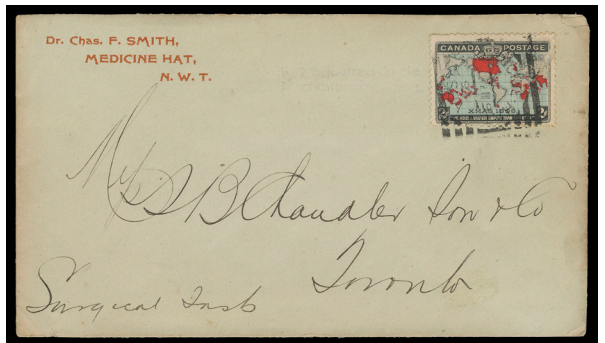 Dr. Chas. F. SMITH,
MEDICINE HAT,
N. W. T.
CANADA POSTAGE
XMAS 1898
Chandler Son & Co
Toronto
Surgical Insts